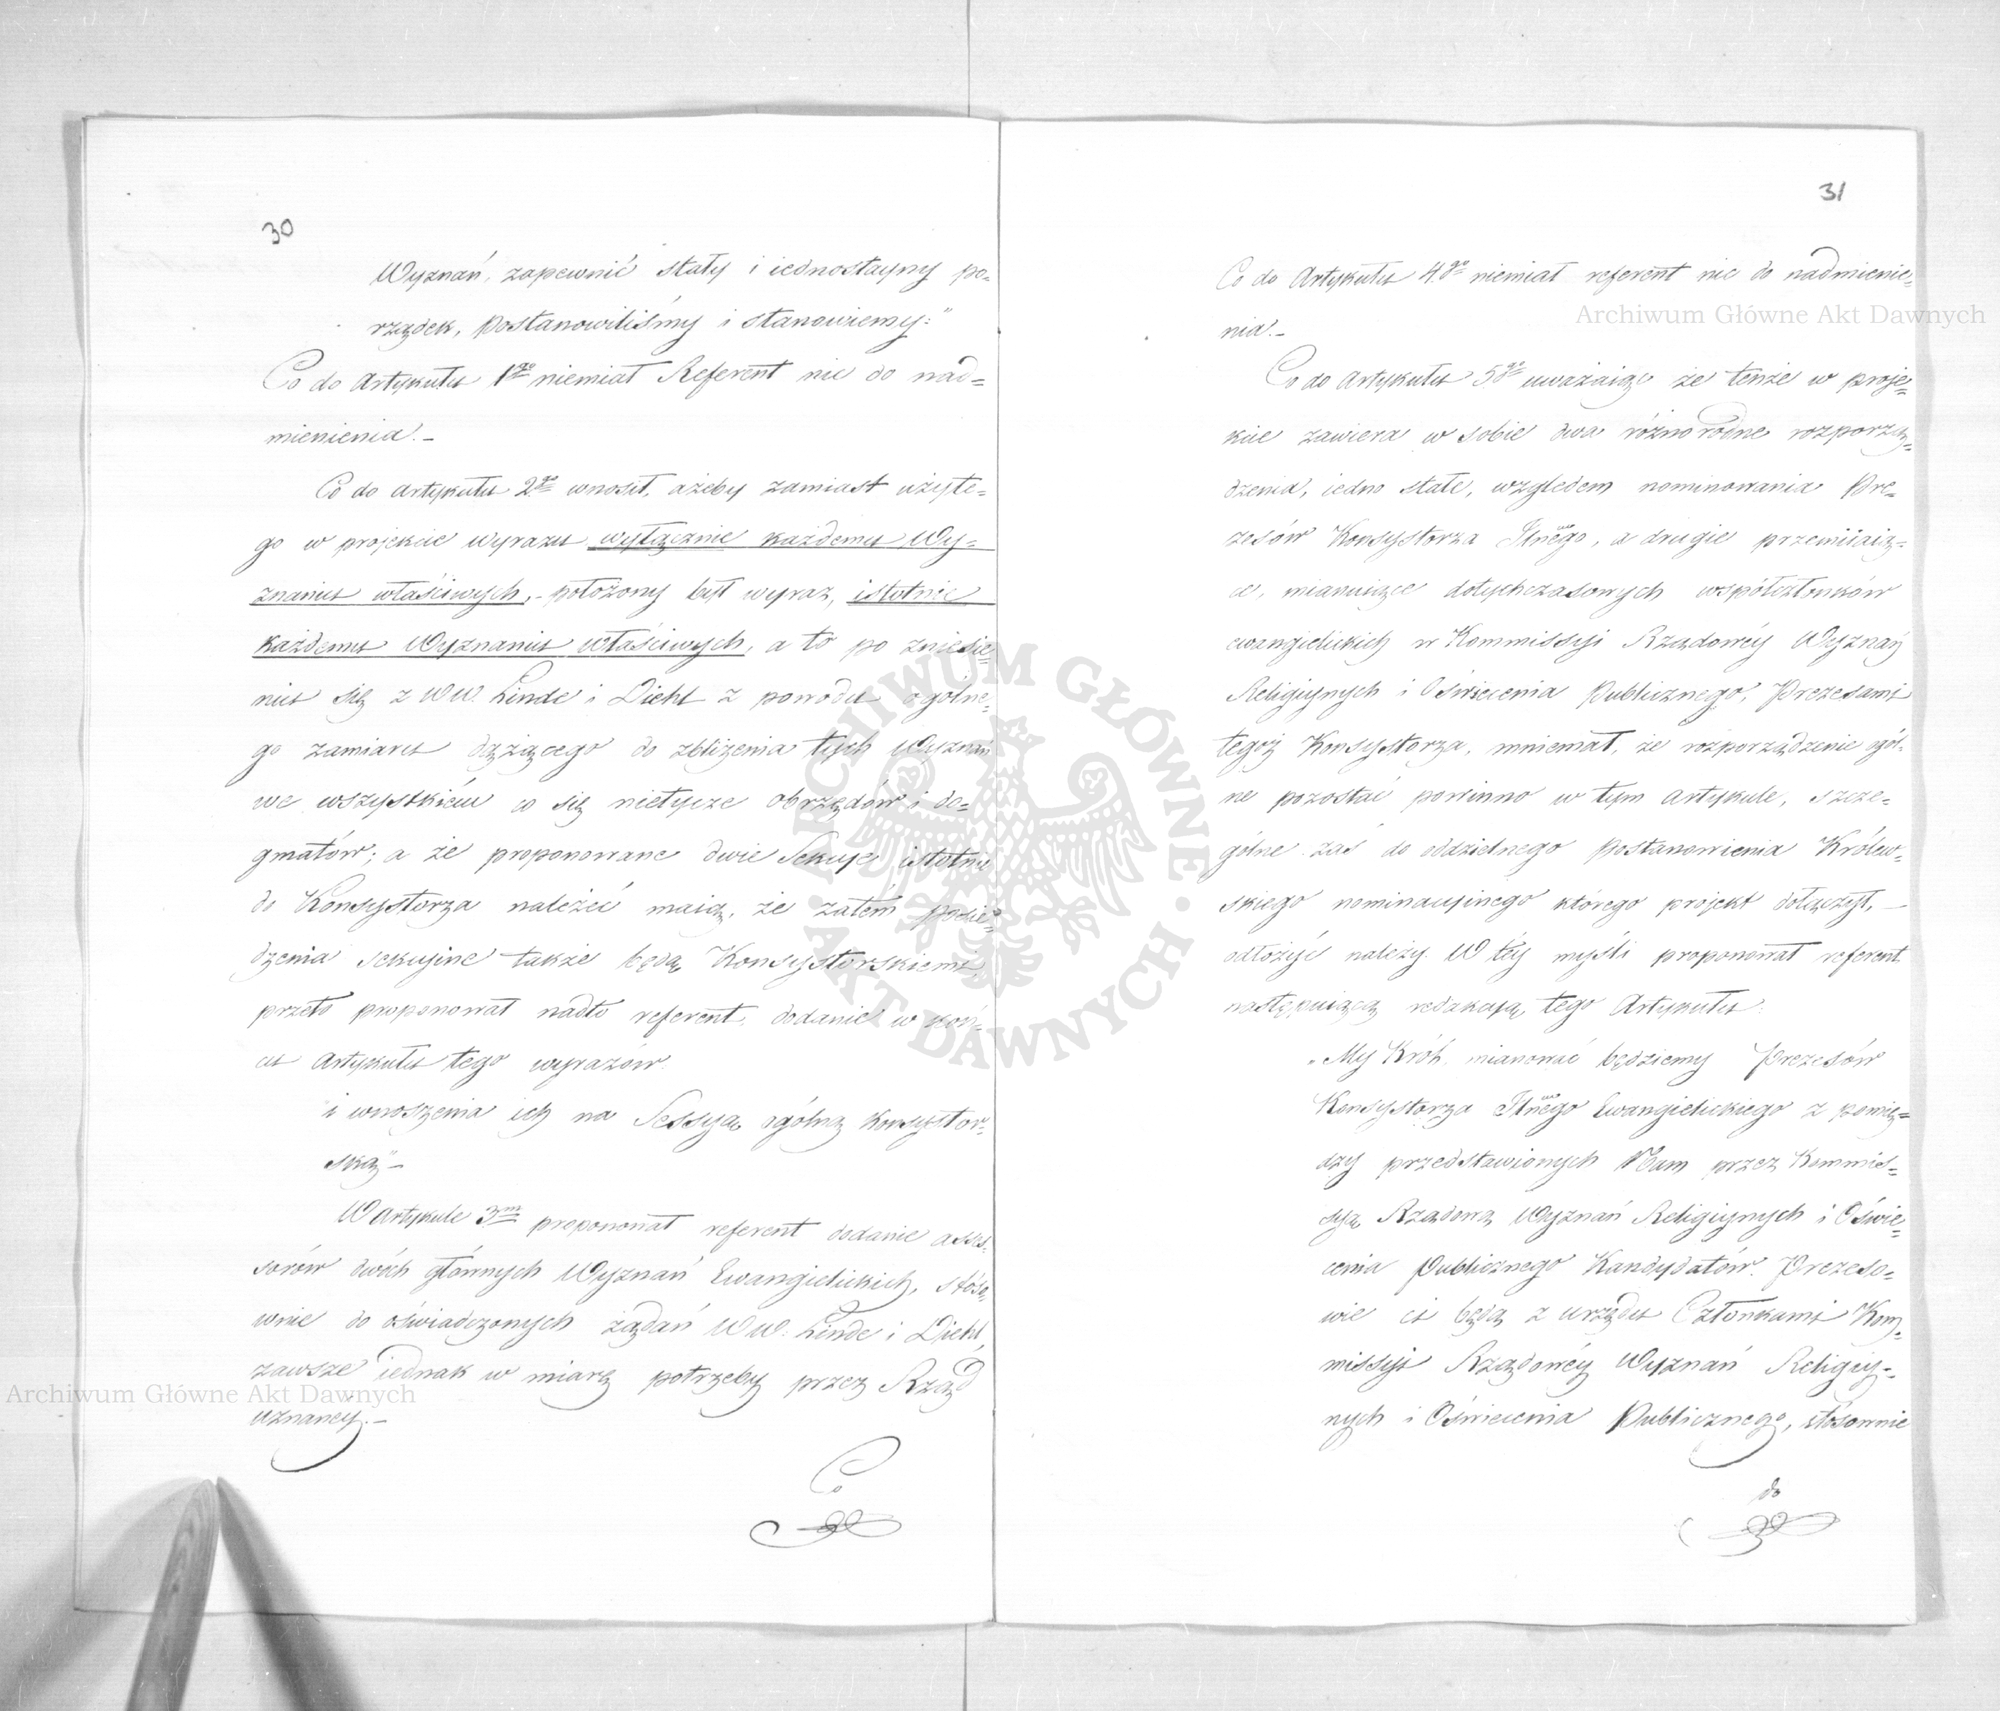 30
Wyznań, zapewnić stały i iednostayny po-
rządek, postanowiliśmy i stanowiemy:"
Co do Artykułu 1go niemiał Referent nic do nad=
mienienia.–
Co do artykułu 2go wnosił, ażeby zamiast użyte-
go w projekcie wyrazu wyłącznie każdemu Wy-
znaniu właściwych, – położony był wyraz, istotnie
każdemu Wyznaniu właściwych, a to po zniesie=
niu się z WW. Linde i Diehl z powodu ogólne-
go zamiaru dążącego do zbliżenia tych Wyznań
we wszystkiem co się nietycze obrzędów i do-
gmatów; a że proponowane dwie Sekcye istotnie
do Konsystorza należeć maią, że zatem posie-
dzenia sekcyine także będą Konsystorskiemi,
przeto proponował nadto referent, dodanie w koń-
cu Artykułu tego wyrazów.
i wnoszenia ich na Sessyą ogólną Konsystor-
ską" –
W Artykule 3m proponował referent dodanie asses-
sorów dwóch głównych Wyznań Ewangielickich, stóso-
wnie do oświadczonych żądań WW. Linde i Diehl,
zawsze iednak w miarę potrzeby przez Rząd
uznaney. –
Co
31
Co do Artykułu 4go niemiał referent nic do nadmienie-
nia.–
Co do Artykułu 5go uważaiąc że tenże w proje=
kcie zawiera w sobie dwa różnorodne rozporzą-
dzenia, iedno stałe, względem nominowania Pre-
zesów Konsystorza Jlnego, a drugie przemiiaią-
ce, mianuiące dotychczasowych współczłonków
ewangielickich w Kommissyi Rządowéy Wyznań
Religiynych i Oświecenia Publicznego, Prezesami
tegoż Konsystorza, mniemał, że rozporządzenie ogól-
ne pozostać powinno w tym Artykule, szcze-
gólne zaś do oddzielnego Postanowienia Królew-
skiego nominacyinego którego projekt dołączył, –
odłożyć należy. W téy myśli proponował referent
następuiącą redakcyą tego Artykułu:
„My Król, mianować będziemy Prezesów
Konsystorza Jlnego Ewangielickiego z pomię=
dzy przedstawionych Nam przez Kommis-
syą Rządową Wyznań Religiynych i Oświe-
cenia Publicznego Kandydatów. Prezeso-
wie ci będą z urzędu Członkami Kom-
missyi Rządowéy Wyznań Religiy-
nych i Oświecenia Publicznego, stósownie
do
Archiwum Główne Akt Dawnych
Archiwum Główne Akt Dawnych
ARCHIWUM GŁÓWNE
AKT DAWNYCH